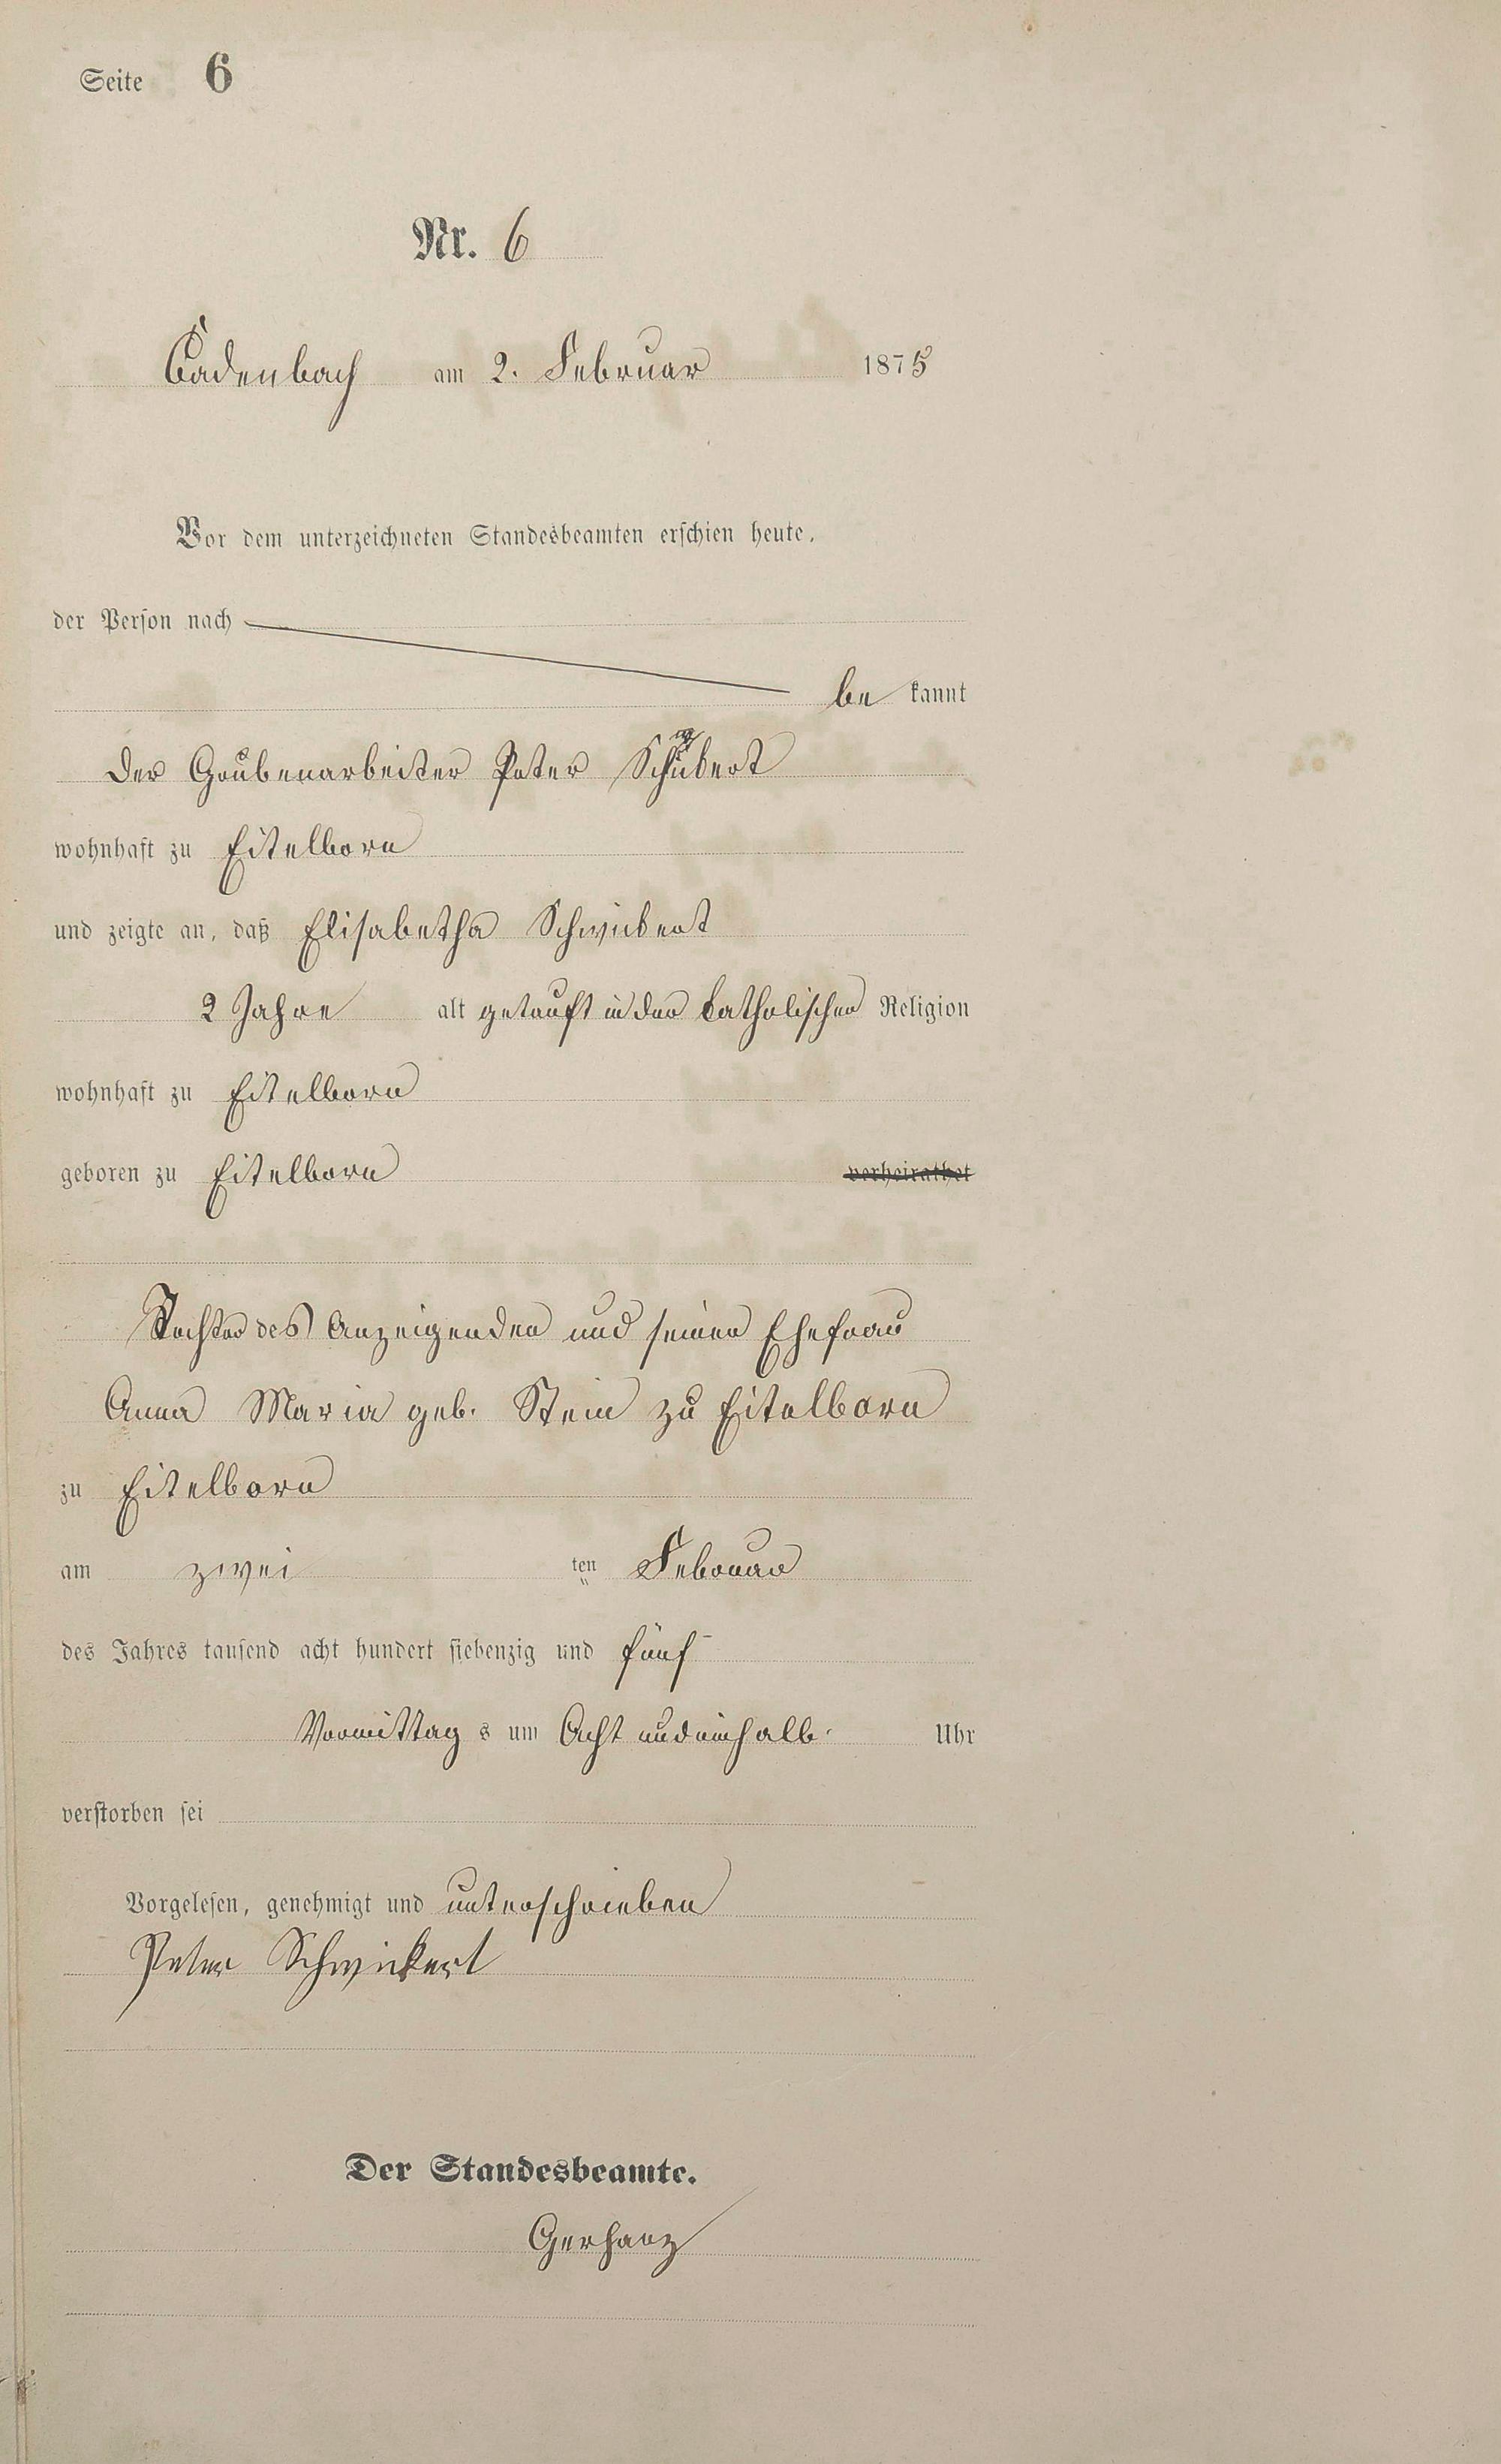 Seite 6
Nr. 6
Cadenbach am 2. Februar 1875
Vor dem unterzeichneten Standesbeamten erschien heute,
der Person nach
be kannt
der Grubenarbeiter Peter Schwikert
wohnhaft zu Eitelborn
und zeigte an, daß Elisabetha Schwikert
2 Jahre alt getauft in der katholischen Religion
wohnhaft zu Eitelborn
geboren zu Eitelborn verheirathet
Tochter des Anzeigenden und seiner Ehefrau
Anna Maria geb. Stein zu Eitelborn
zu Eitelborn
am zwei ten Februar
des Jahres tausend acht hundert siebenzig und fünf
Vormittag s um Acht und einhalb Uhr
verstorben sei
Vorgelesen, genehmigt und unterschrieben
Peter Schwickert
Der Standesbeamte.
Gerharz